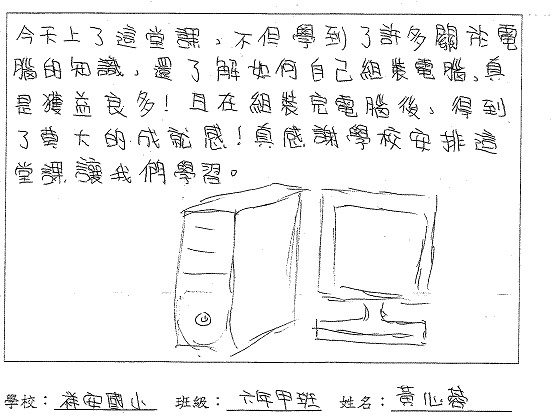 今天上了這堂課，不但學到了許多關於電
腦的知識，還了解如何自己組裝電腦，真
是獲益良多！且在組裝完電腦後，得到
了莫大的成就感！真感謝學校安排這
堂課讓我們學習。
學校：祥安國小 班級：六年甲班 姓名：黃心蓉